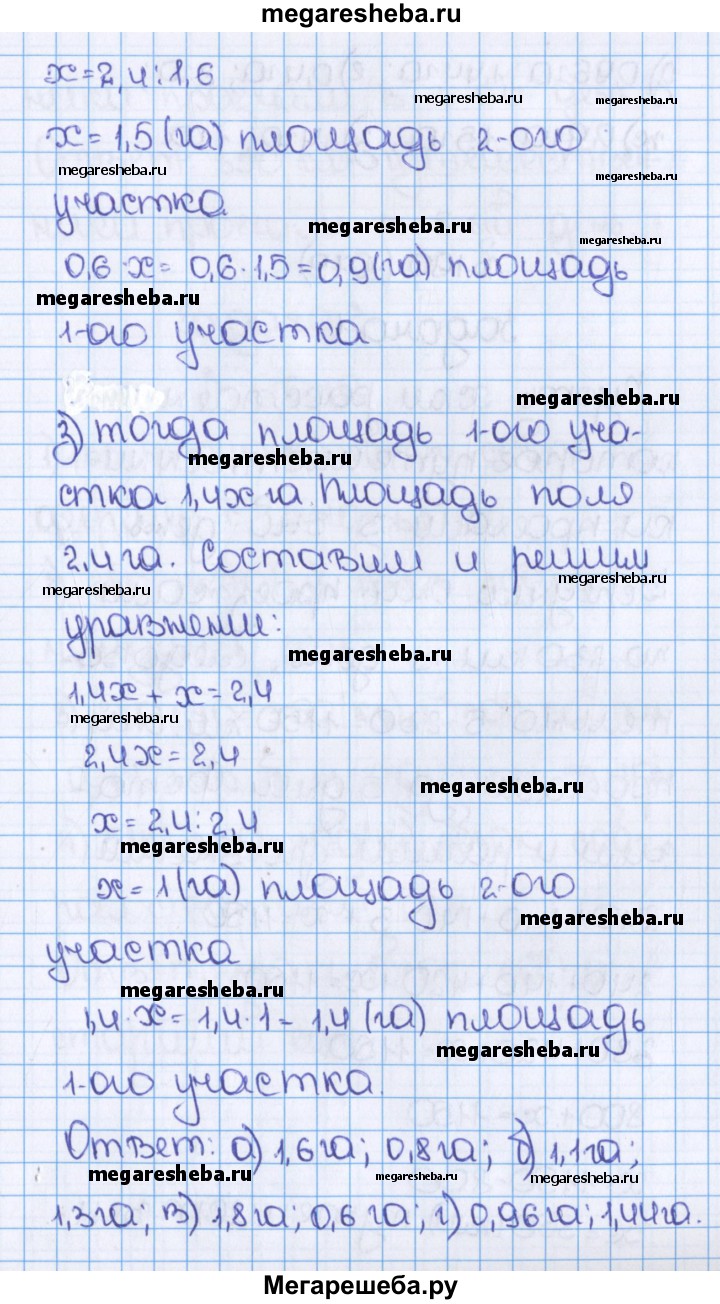 megaresheba.ru
x=2,4:1,6
megaresheba.ru megaresheba.ru
x=1,5(га) площадь 2-ого
megaresheba.ru megaresheba.ru
участка
megaresheba.ru
megaresheba.ru
0,6·x= 0,6·1,5=0,9(га) площадь
megaresheba.ru
1-ого участка
megaresheba.ru
з) тогда площадь 1-ого уча-
megaresheba.ru
стка 1,4x га. Площадь поля
2,4 га. Составим и решим
megaresheba.ru megaresheba.ru
уравнении:
megaresheba.ru
1,4x + x = 2,4
megaresheba.ru
2,4x = 2,4
megaresheba.ru
x= 2,4:2,4
megaresheba.ru
x=1(га) площадь 2-ого
megaresheba.ru
участка
megaresheba.ru
1,4·x=1,4·1=1,4(га) площадь
megaresheba.ru
1-ого участка.
Ответ: а) 1,6га; 0,8га; б) 1,1га;
megaresheba.ru megaresheba.ru megaresheba.ru
1,3га; в) 1,8га; 0,6 га; г) 0,96га; 1,44га.
Мегарешеба.ру